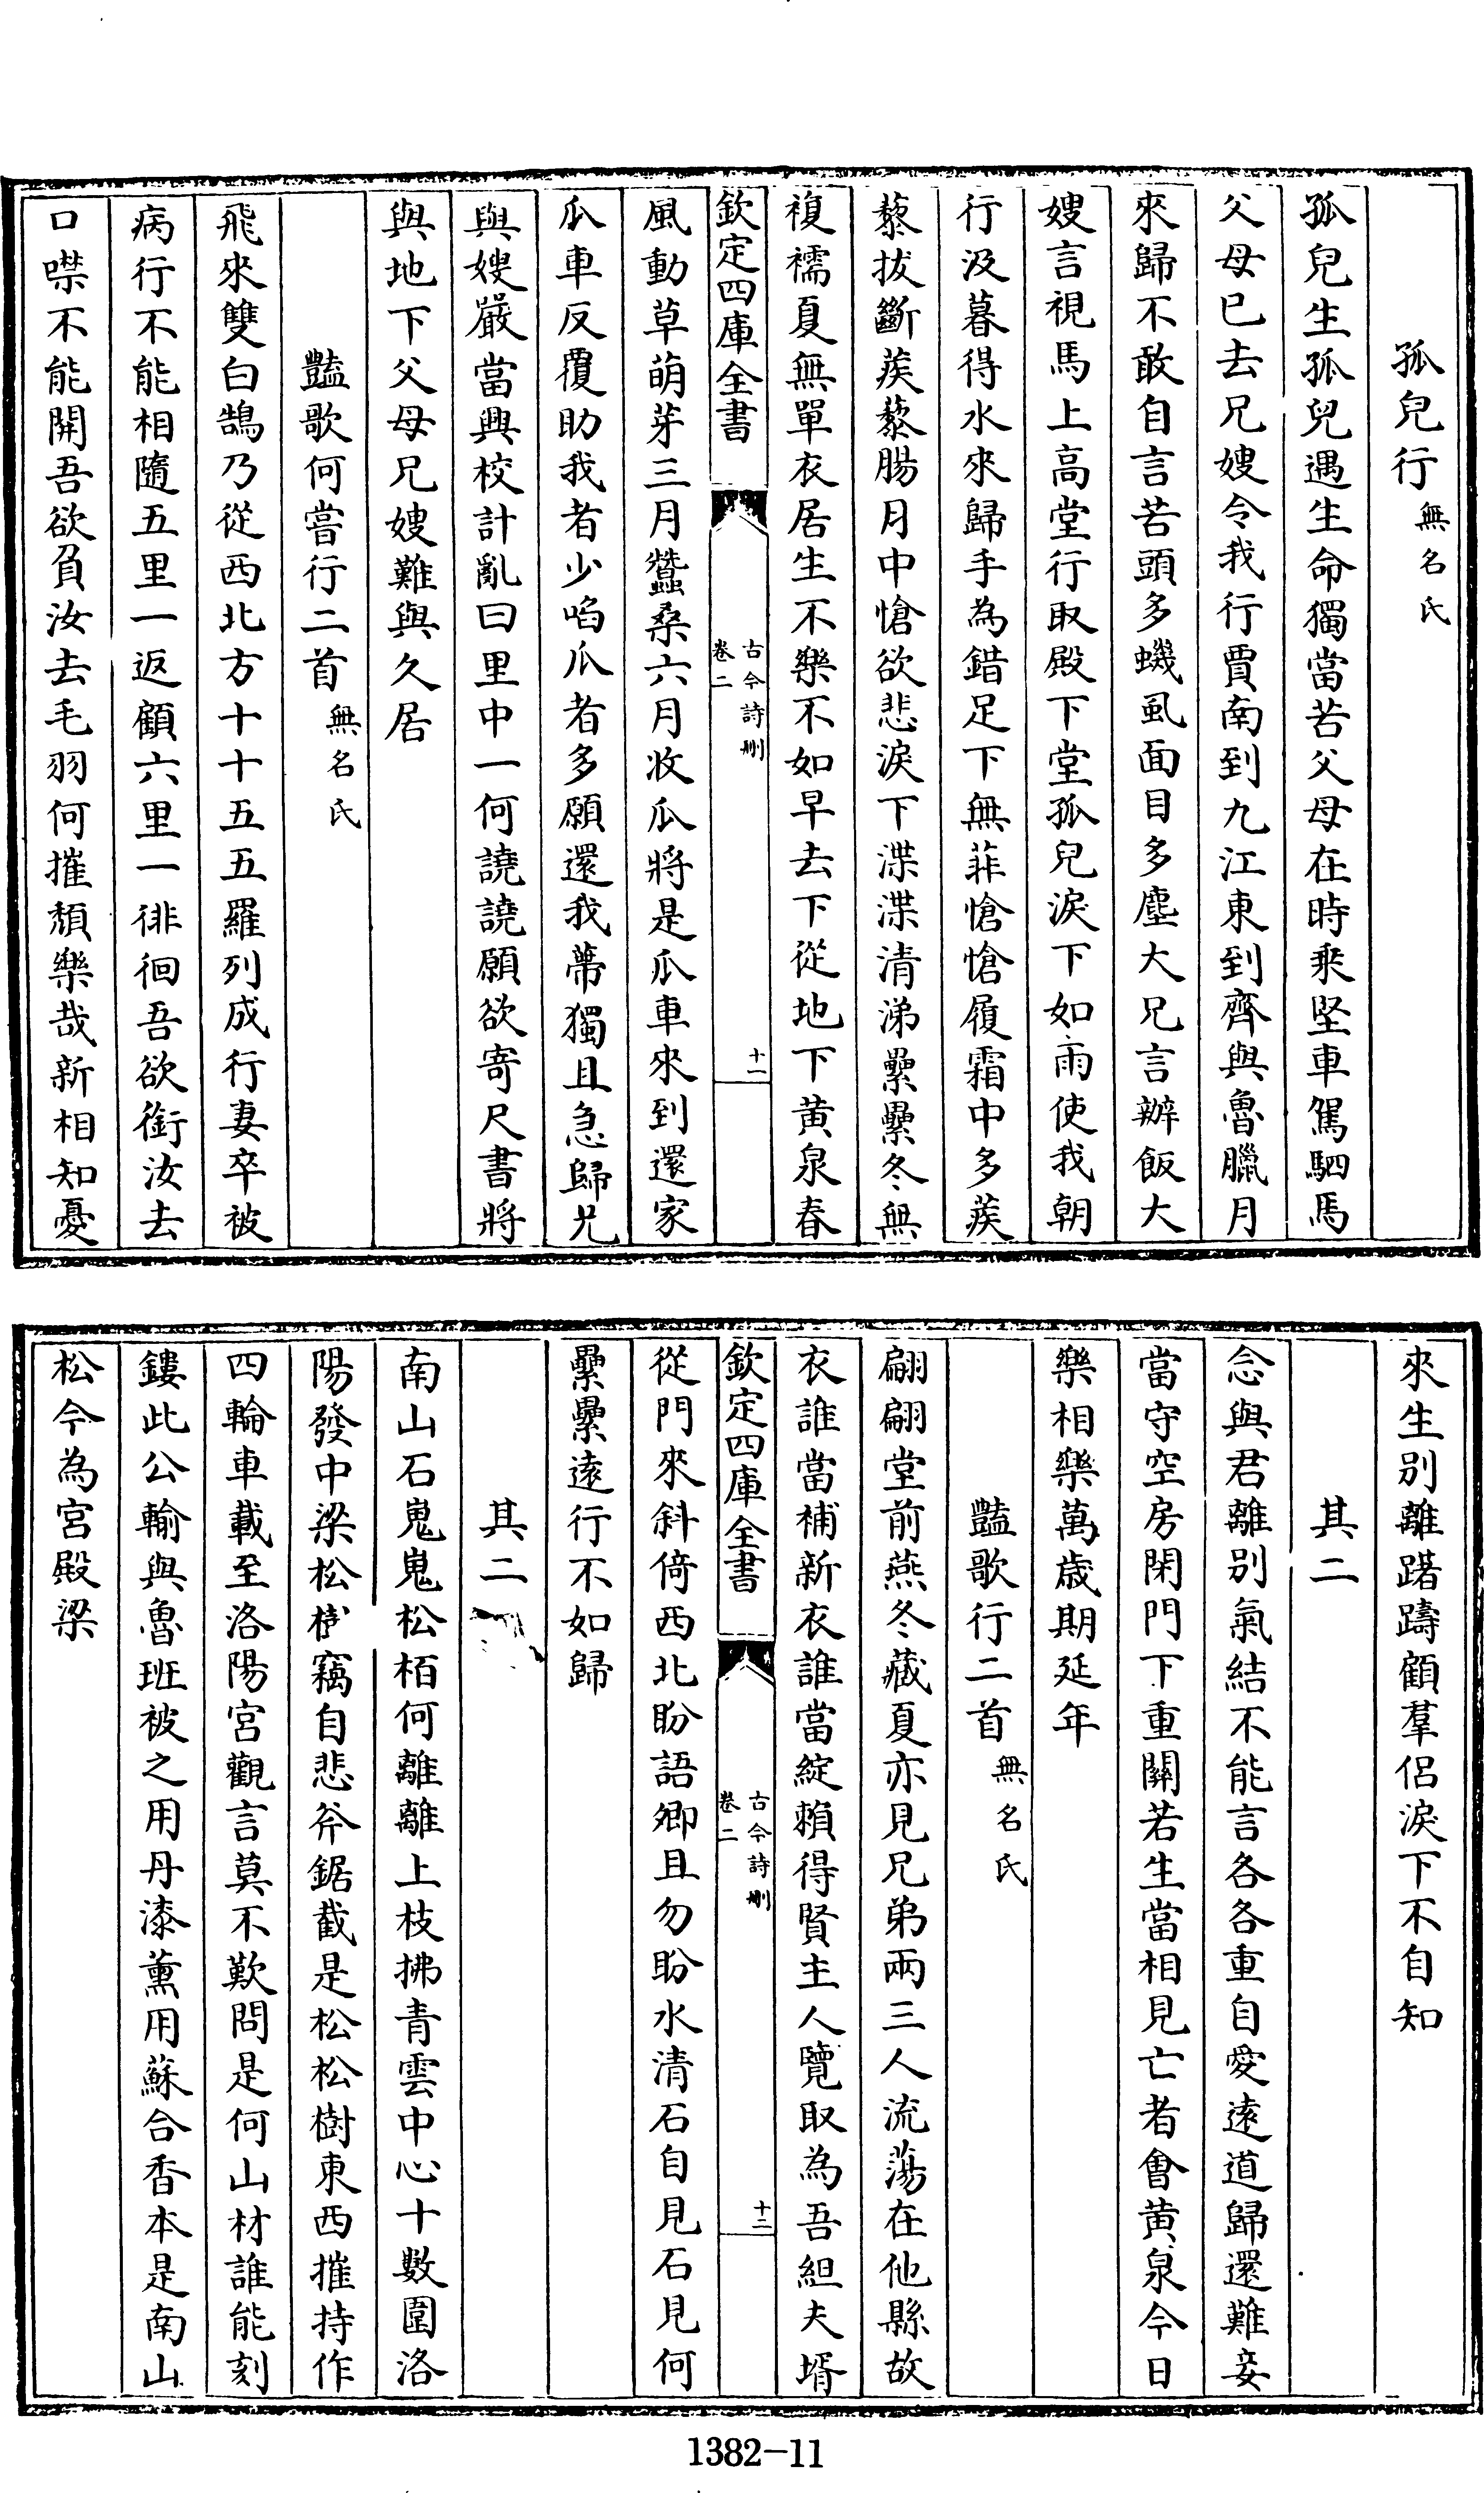 孤兒行無名氏
孤兒生孤兒遇生命獨當苦父母在時乘堅車駕駟馬
父母已去兄嫂令我行賈南到九江東到齊與魯臘月
來歸不敢自言苦頭多蟣虱面目多塵大兄言辦飯大
嫂言視馬上高堂行取殿下堂孤兒淚下如雨使我朝
行汲暮得水來歸手為錯足下無菲愴愴履霜中多蒺
藜拔斷蒺藜腸月中愴欲悲淚下渫渫清涕纍纍冬無
複襦夏無單衣居生不樂不如早去下從地下黄泉春
欽定四庫全書
古今詩刪
卷二
十一
風動草萌芽三月蠶桑六月收瓜將是瓜車來到還家
瓜車反覆助我者少啗瓜者多願還我蔕獨且急歸兄
與嫂嚴當興校計亂曰里中一何譊譊願欲寄尺書將
與地下父母兄嫂難與久居
豔歌何嘗行二首無名氏
飛來雙白鵠乃從西北方十十五五羅列成行妻卒被
病行不能相隨五里一返顧六里一徘徊吾欲銜汝去
口噤不能開吾欲負汝去毛羽何摧頽樂哉新相知憂
來生別離躇躊顧羣侶淚下不自知
其二
念與君離別氣結不能言各各重自愛逺道歸還難妾
當守空房閑門下重關若生當相見亡者會黄泉今日
樂相樂萬歲期延年
豔歌行二首無名氏
翩翩堂前燕冬藏夏亦見兄弟兩三人流蕩在他縣故
衣誰當補新衣誰當綻賴得賢主人覽取為吾組夫壻
欽定四庫全書
古今詩刪
卷二
十二
從門來斜倚西北盼語卿且勿盼水清石自見石見何
纍纍逺行不如歸
其二
南山石嵬嵬松栢何離離上枝拂青雲中心十數圍洛
陽發中梁松樹竊自悲斧鋸截是松松樹東西摧持作
四輪車載至洛陽宮觀言莫不歎問是何山材誰能刻
鏤此公輸與魯班被之用丹漆薰用蘇合香本是南山
松今為宮殿梁
1382-11